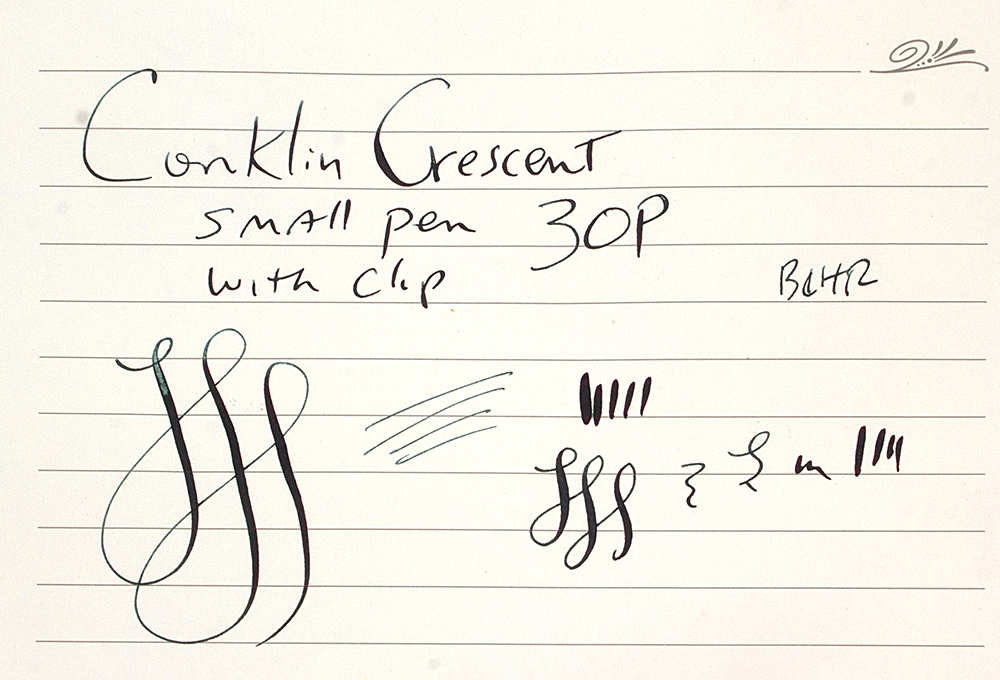 Conklin Crescent
small pen 30P
with clip
BCHR